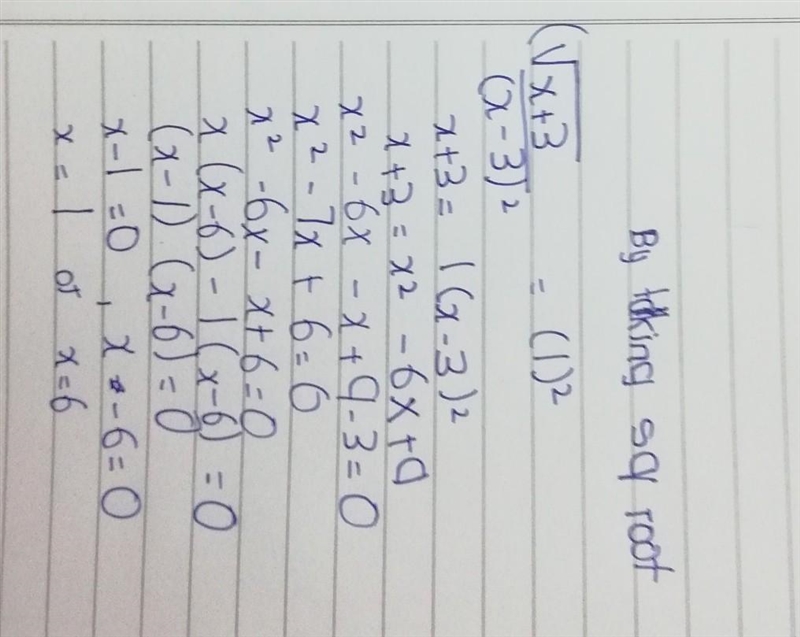 By taking sq root
(√x+3 / (x-3)² = (1)²
x+3 = 1(x-3)²
x+3 = x² - 6x + 9
x² - 6x - x + 9 - 3 = 0
x² - 7x + 6 = 0
x² - 6x - x + 6 = 0
x(x-6) - 1(x-6) = 0
(x-1) (x-6) = 0
x-1 = 0 , x - 6 = 0
x = 1 or x = 6